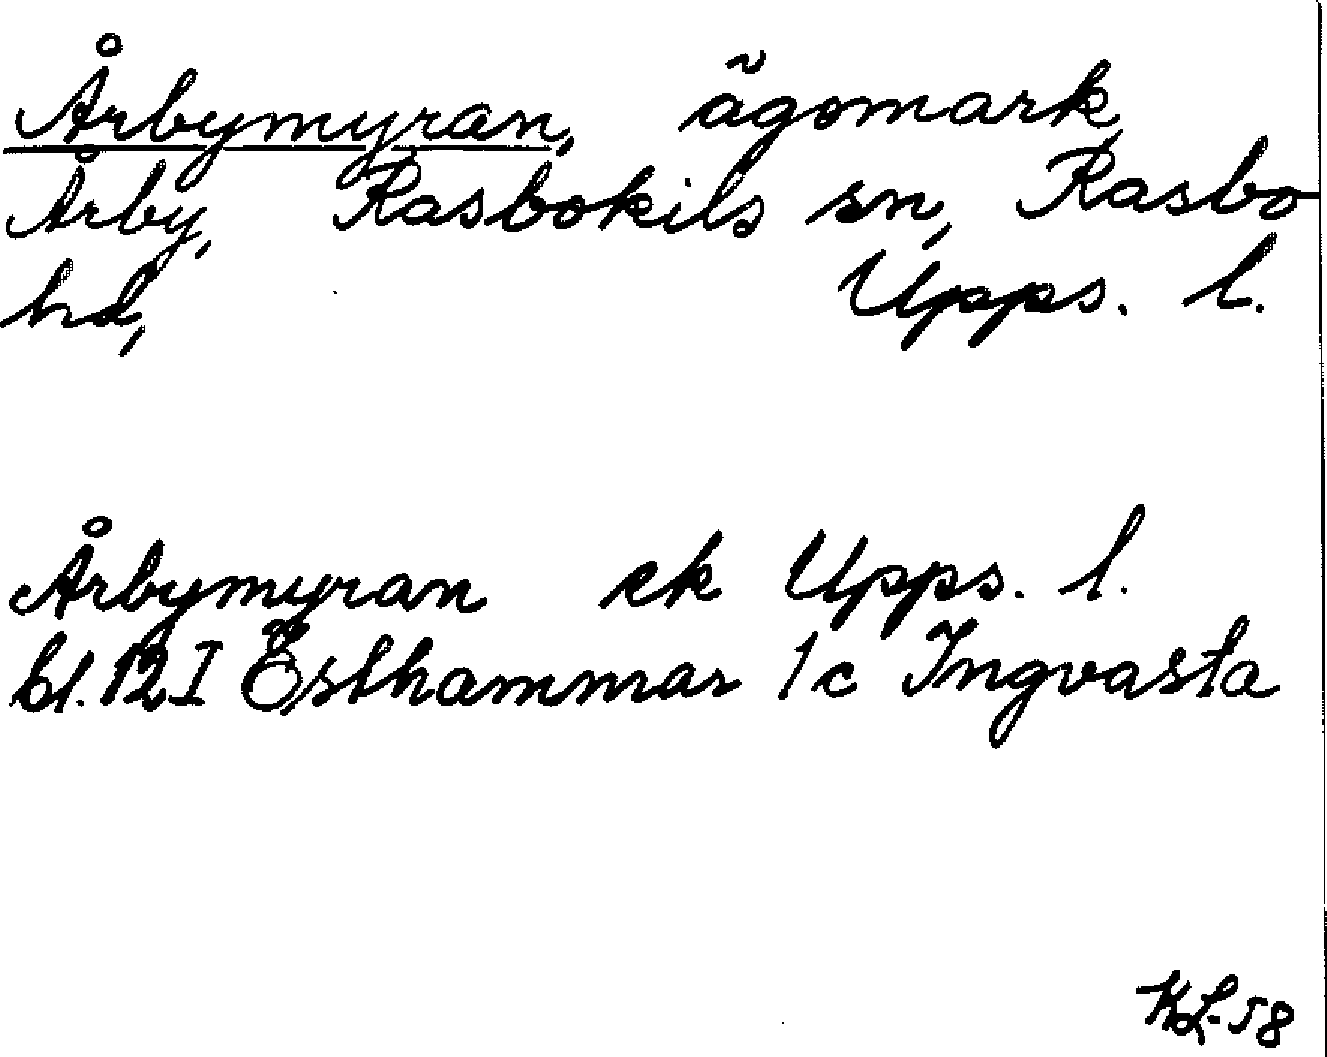 Årbymyran, ägomark,
Årby, Rasbokils sn, Rasbo
hd, Upps. l.
Årbymyran ek Upps. l.
bl. 12 I Östhammar 1c Ingvasta
KL-58